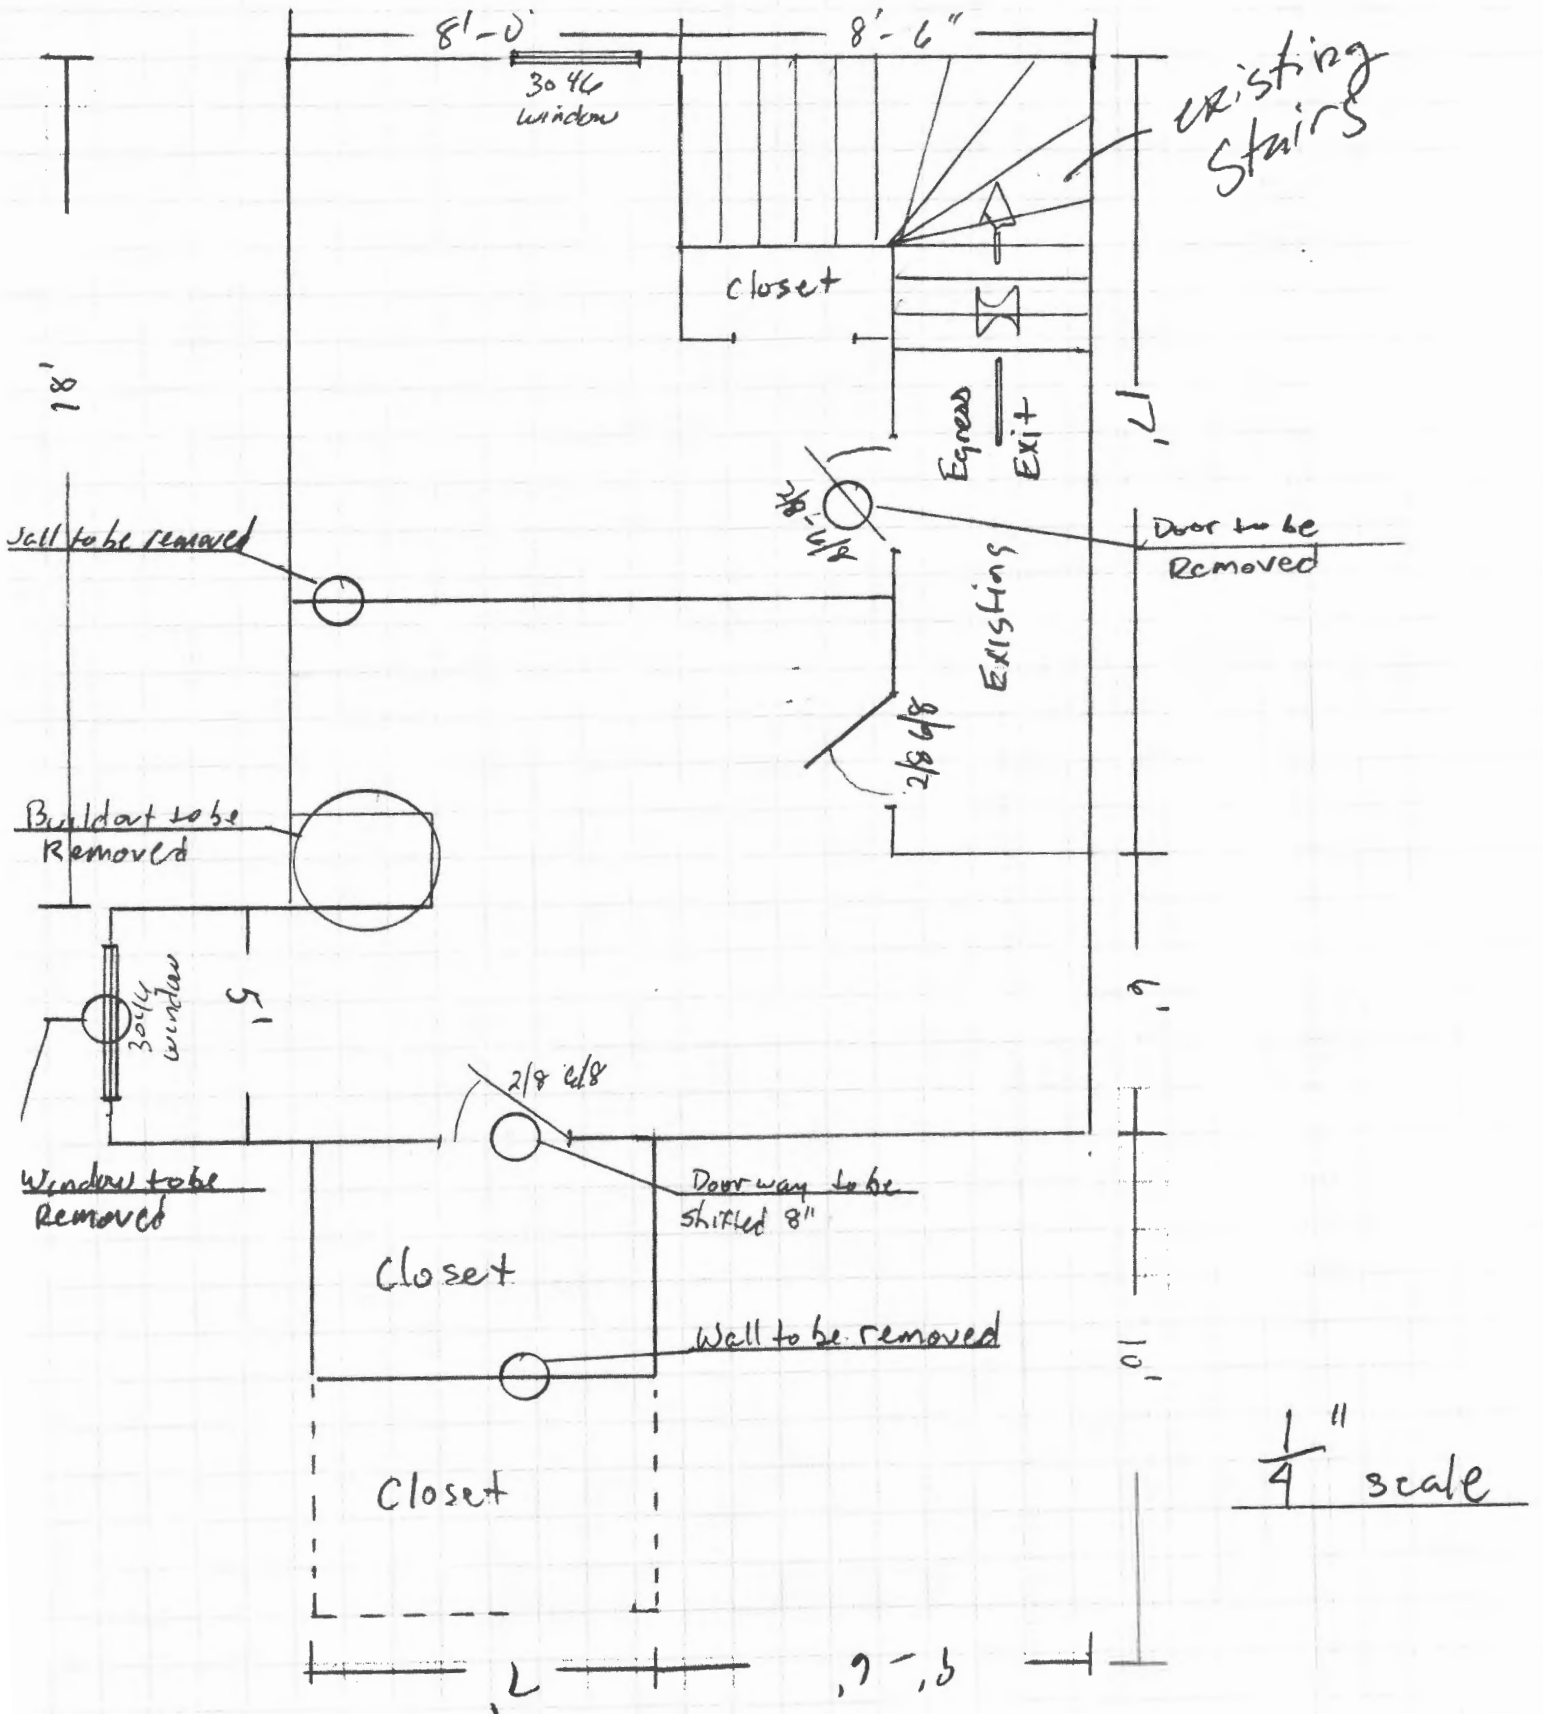 8'-0"
8'-6"
3046
window
existing
stairs
closet
18'
17'
Egress
Exit
Wall to be removed
Door to be
Removed
Existing
2/8 6/8
Buildout to be
Removed
5'
3046
window
6'
2/8 6/8
Window to be
Removed
Doorway to be
shifted 8"
Closet
Wall to be removed
10'
Closet
1/4" scale
7'